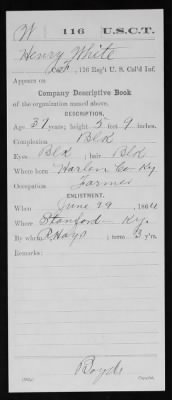 W 116 U.S.C.T.
Henry White
, 116 Reg't U. S. Col'd Inf.
Appears on
Company Descriptive Book
of the organization named above.
DESCRIPTION.
Age 37 years; height 5 feet 9 inches.
Complexion Blk
Eyes Blk ; hair Blk
Where born Harlen Co Ky
Occupation Farmer
ENLISTMENT.
When June 29, 1864
Where Stanford Ky.
By whom R Hays ; term 3 y'rs.
Remarks:
Boyde
Copyist.